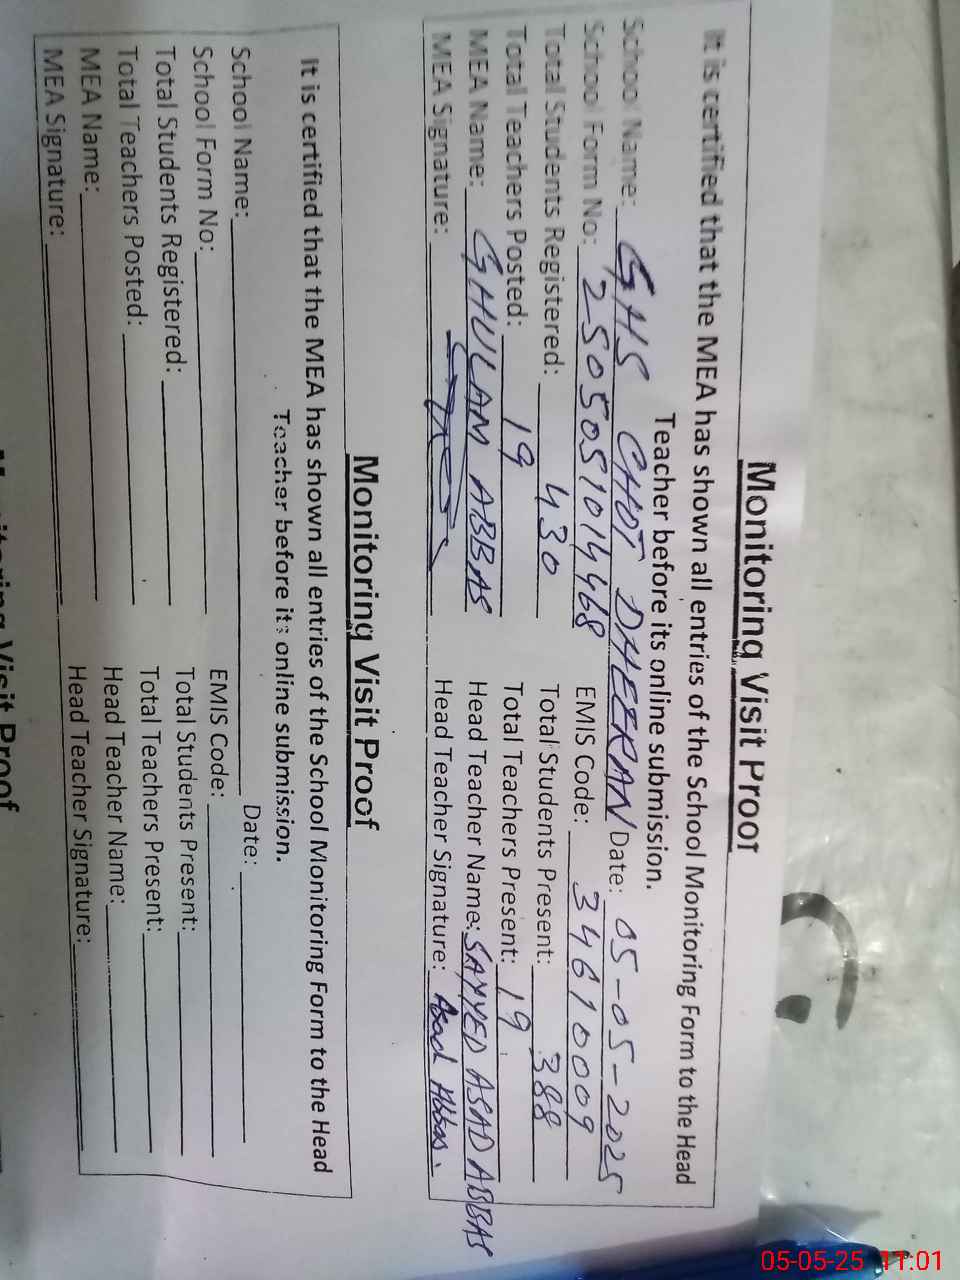 Monitoring Visit Proof
It is certified that the MEA has shown all entries of the School Monitoring Form to the Head
Teacher before its online submission.
School Name: GHS CHOT DHEERAN Date: 05-05-2025
School Form No: 2505051014468 EMIS Code: 34610009
Total Students Registered: 430 Total Students Present: 388
Total Teachers Posted: 19 Total Teachers Present: 19
MEA Name: GHULAM ABBAS Head Teacher Name: SAYYED ASAD ABBAS
MEA Signature: Head Teacher Signature: Asad Abbas.
Monitoring Visit Proof
It is certified that the MEA has shown all entries of the School Monitoring Form to the Head
Teacher before its online submission.
School Name: Date:
School Form No: EMIS Code:
Total Students Registered: Total Students Present:
Total Teachers Posted: Total Teachers Present:
MEA Name: Head Teacher Name:
MEA Signature: Head Teacher Signature:
Monitoring Visit Proof
05-05-25 11:01